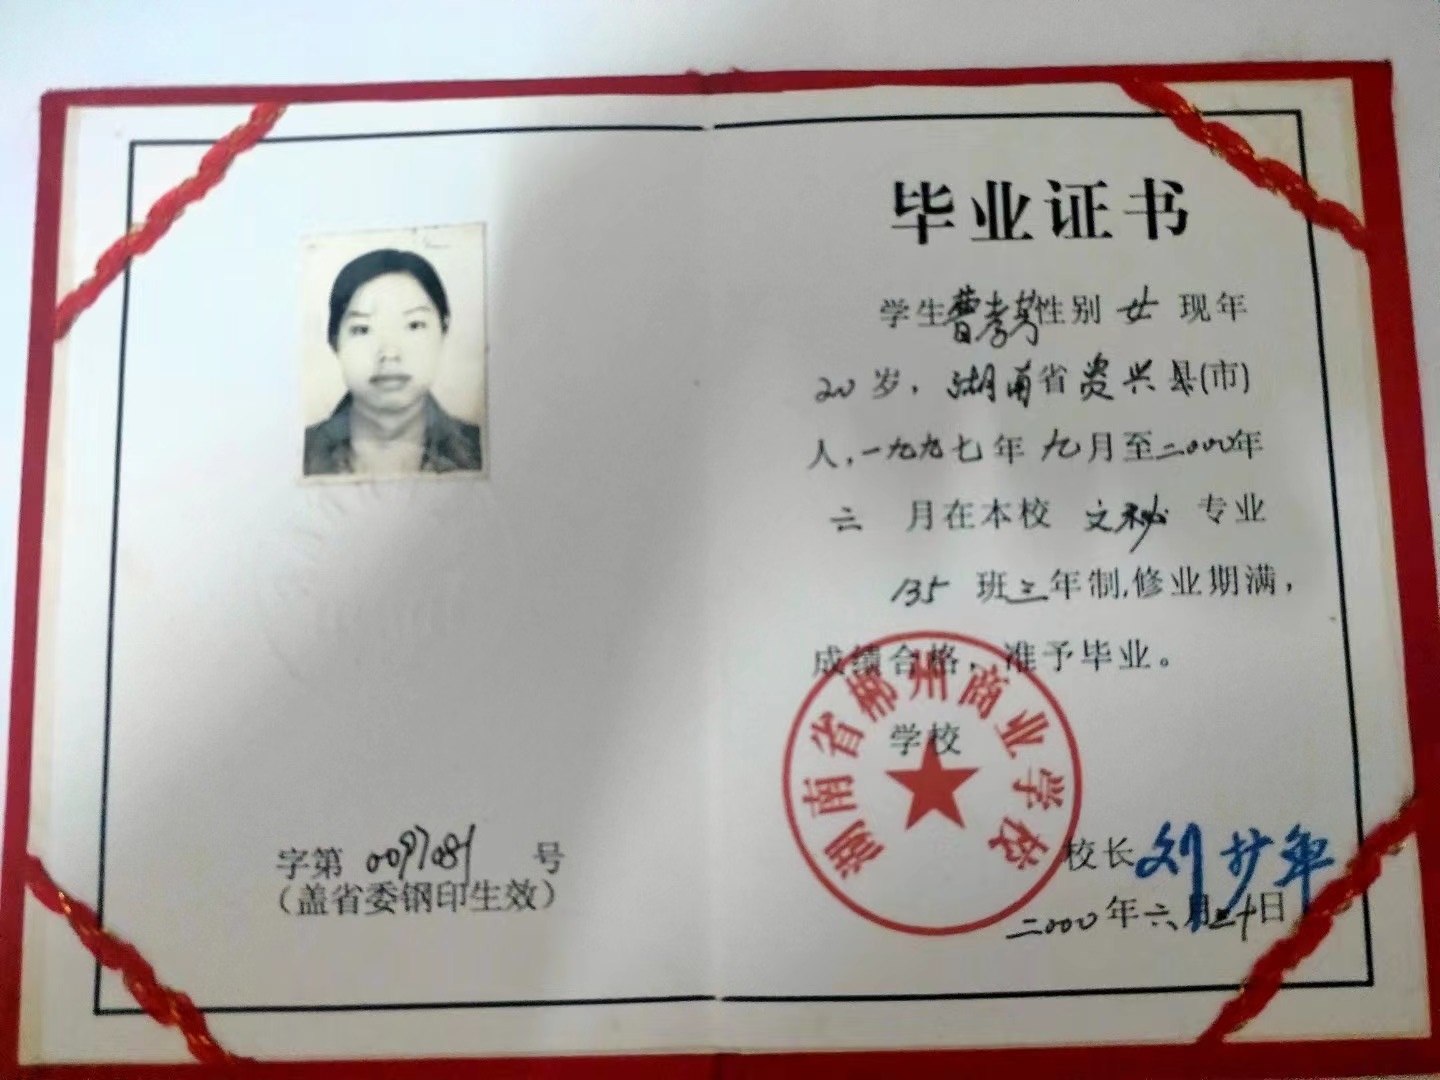 字第0097081号
(盖省委钢印生效)
毕业证书
学生曹孝 性别女现年
20岁，湖南省资兴县(市)
人，一九九七年九月至二000年
六月在本校文秘专业
135班三年制,修业期满，
成绩合格，准予毕业。
学校
湖南省郴州商业学校
校长刘少军
二000年六月 十日